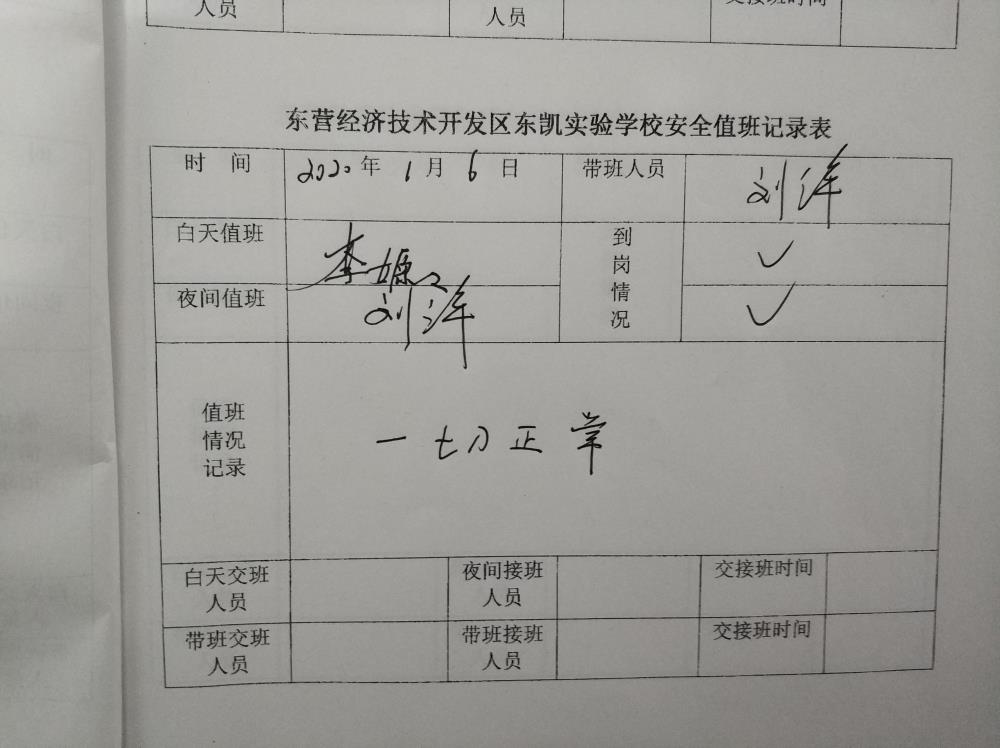 人员 人员 交接班时间
东营经济技术开发区东凯实验学校安全值班记录表
时 间 2020年 1月 6日 带班人员 刘洋
白天值班 李 到岗情况 ✓
夜间值班 刘洋 ✓
值班情况记录 一切正常
白天交班人员 夜间接班人员 交接班时间
带班交班人员 带班接班人员 交接班时间